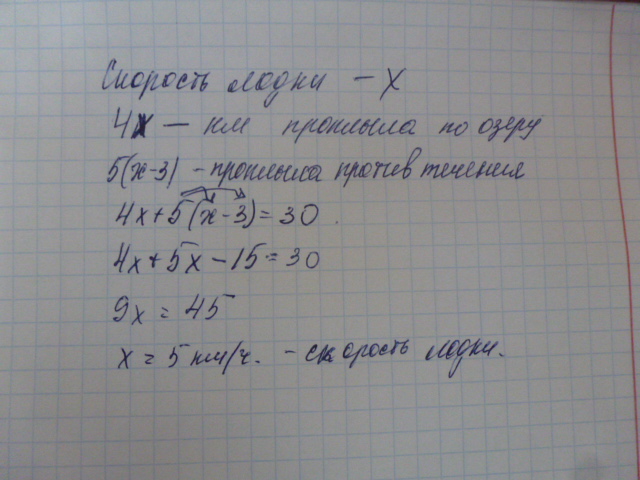 Скорость лодки – х
4х – км проплыла по озеру
5(х-3) - проплыла против течения
4х+5(х-3)=30.
4х+5х-15=30
9х=45
х=5 км/ч. - скорость лодки.